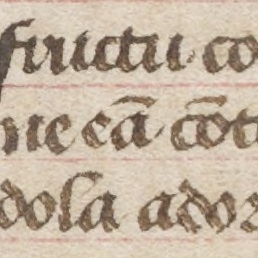 fructu· co
ne eā· cōt
dola ador